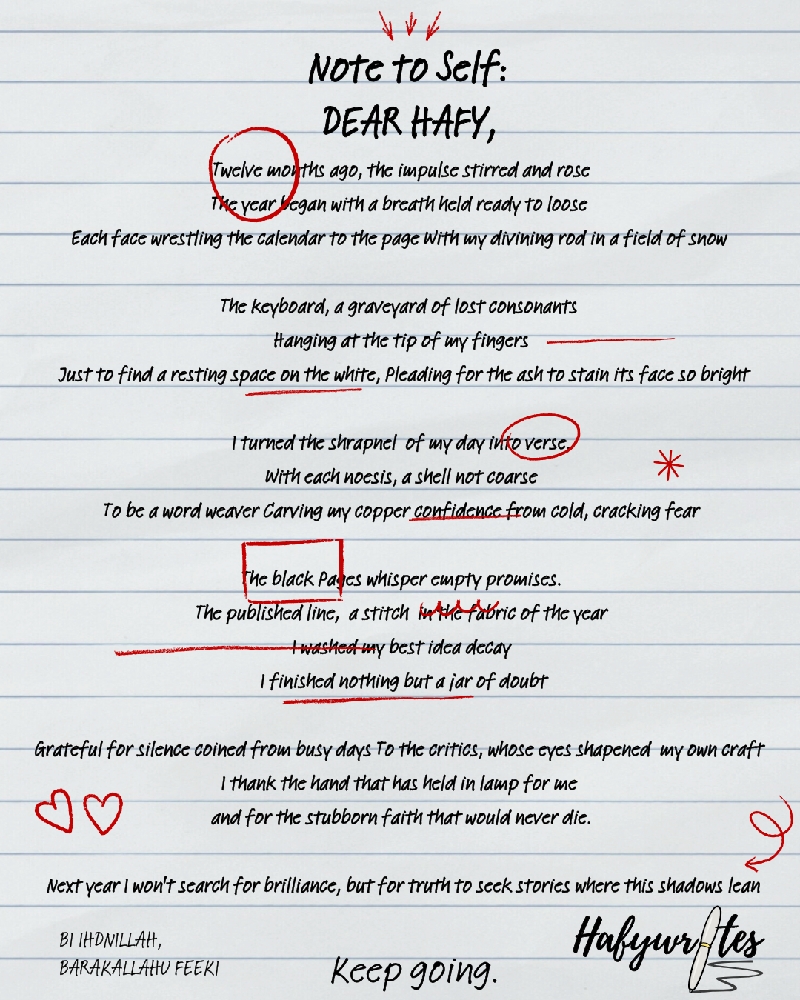 Note to Self:
DEAR HAFY,
Twelve months ago, the impulse stirred and rose
The year began with a breath held ready to loose
Each face wrestling the calendar to the page With my divining rod in a field of snow
The keyboard, a graveyard of lost consonants
Hanging at the tip of my fingers
Just to find a resting space on the white, Pleading for the ash to stain its face so bright
I turned the shrapnel of my day into verse.
With each noesis, a shell not coarse
To be a word weaver Carving my copper confidence from cold, cracking fear
The black Pages whisper empty promises.
The published line, a stitch in the fabric of the year
I washed my best idea decay
I finished nothing but a jar of doubt
Grateful for silence coined from busy days To the critics, whose eyes shapened my own craft
I thank the hand that has held in lamp for me
and for the stubborn faith that would never die.
Next year I won't search for brilliance, but for truth to seek stories where this shadows lean
BI IHDNILLAH,
BARAKALLAHU FEEKI
Keep going.
Hafywrites